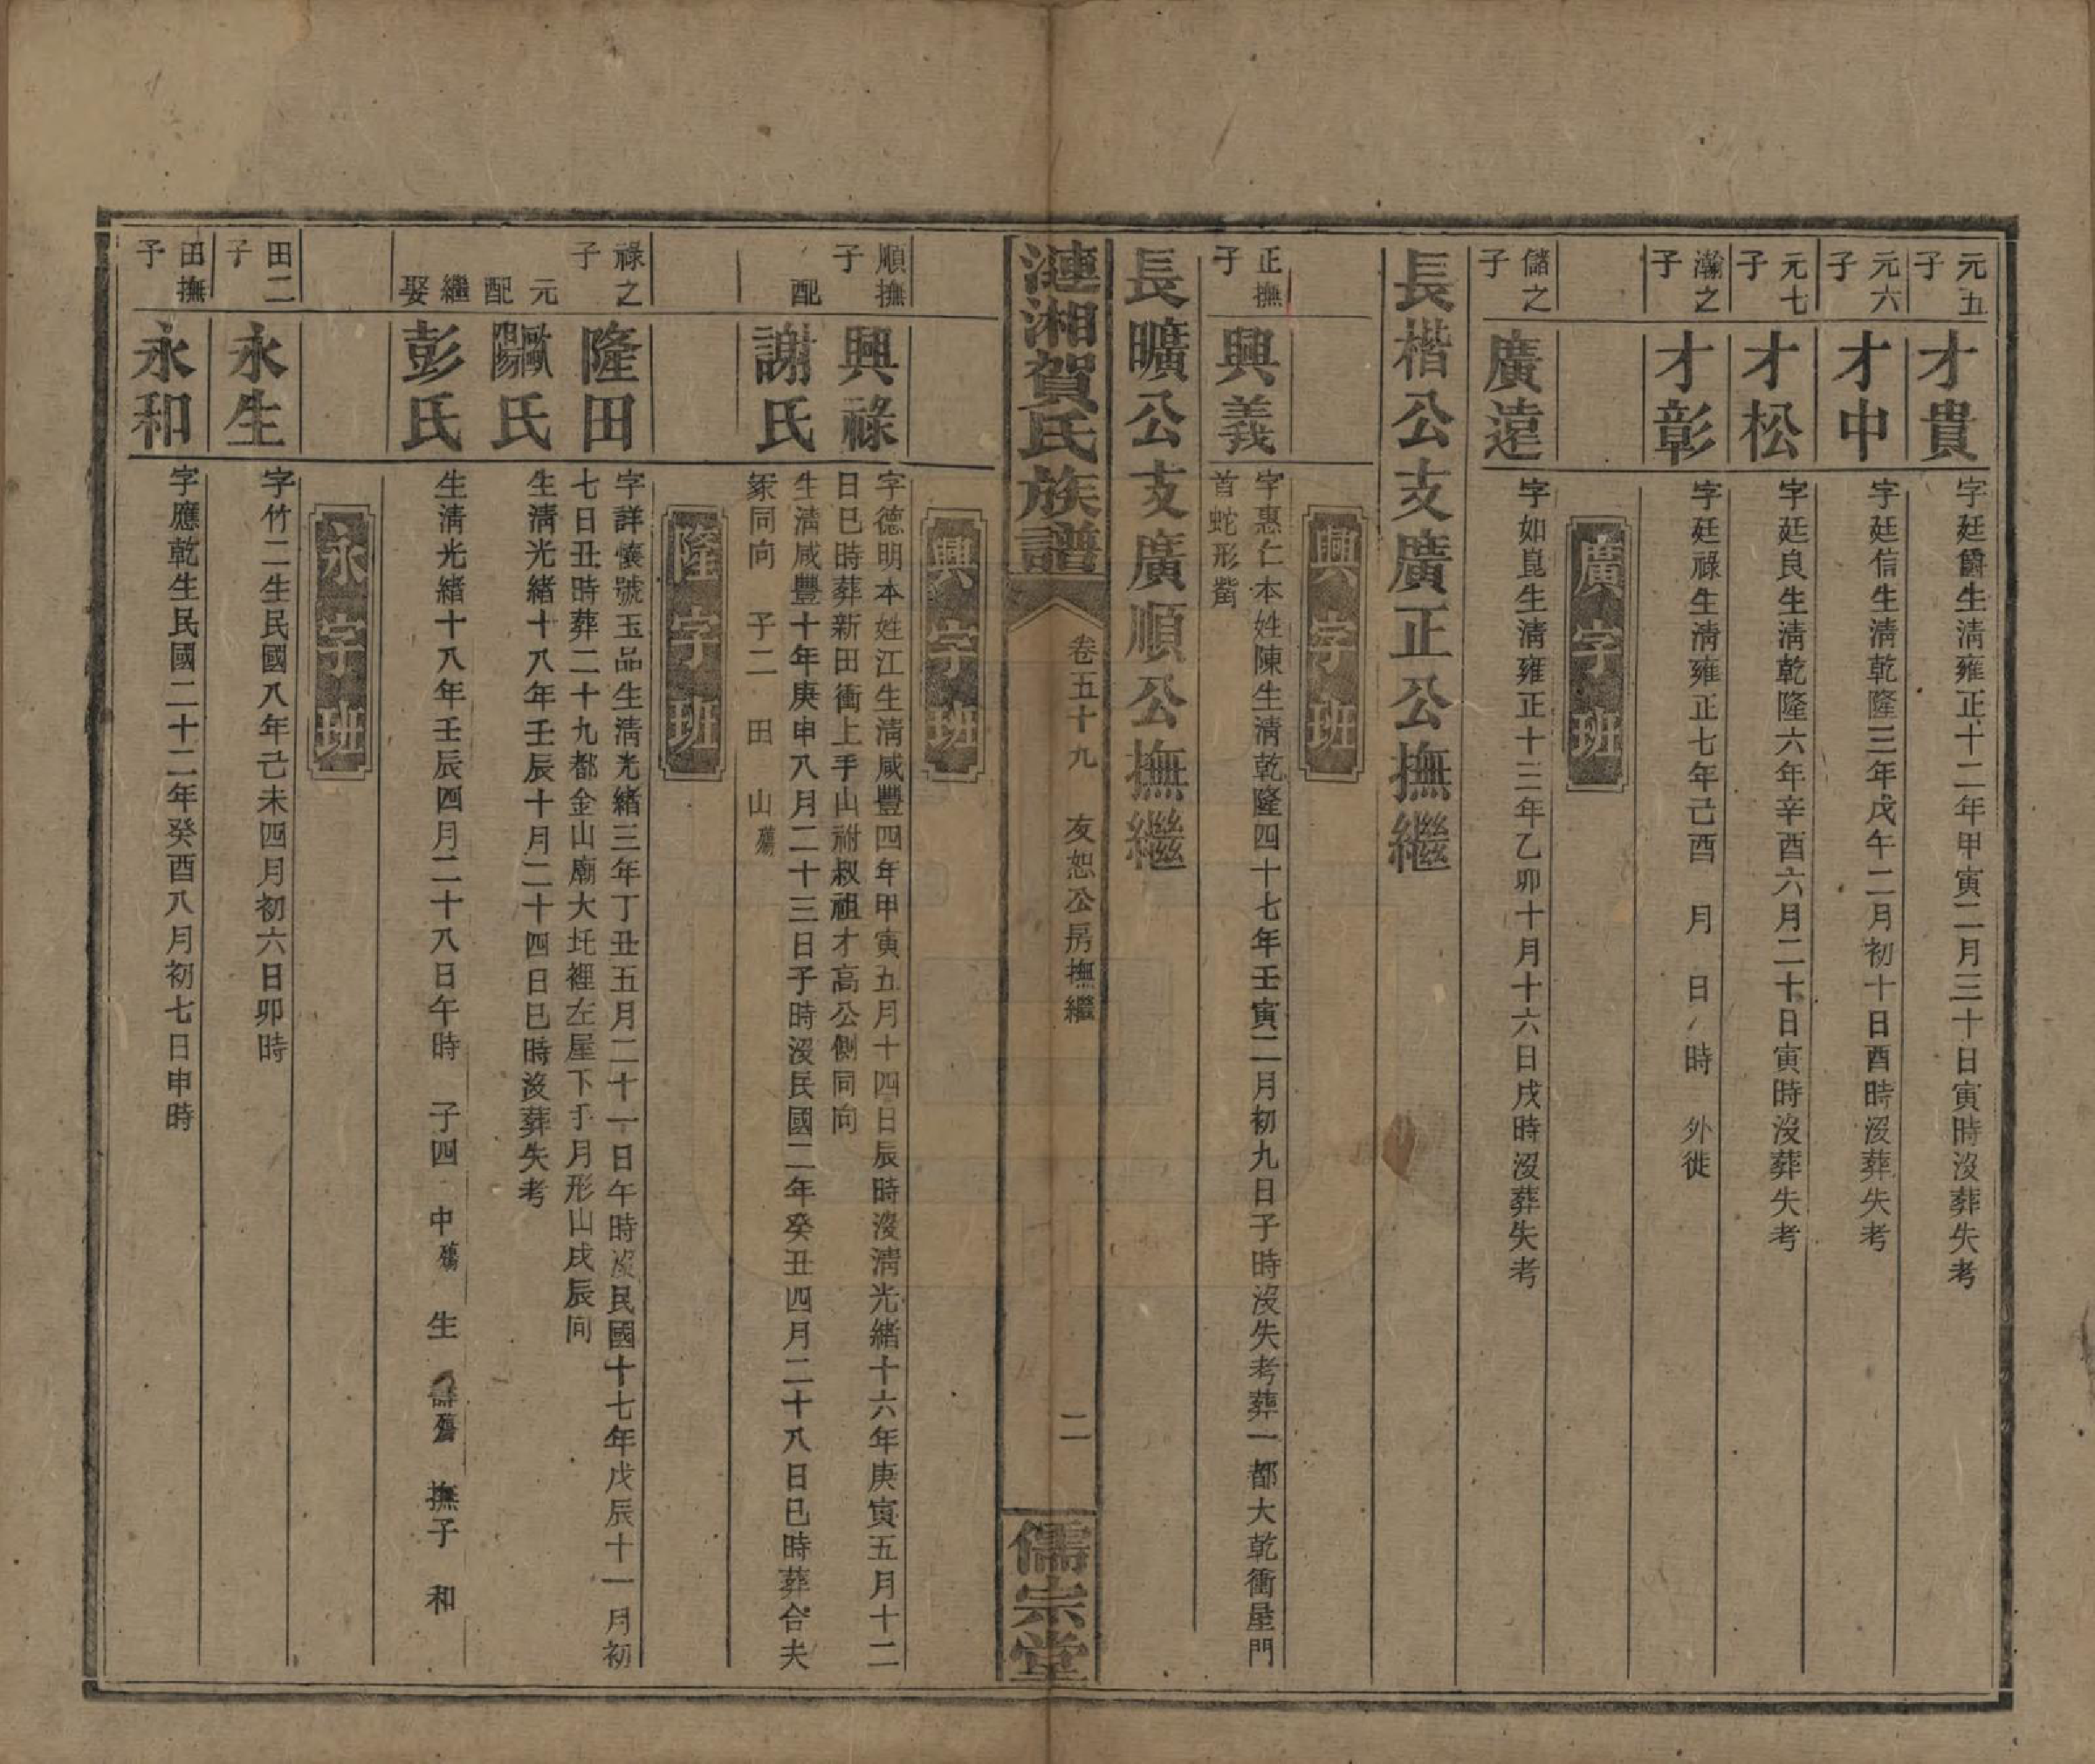 元五子
才貴
字廷爵生淸雍正十二年甲寅二月三十日寅時沒葬失考
元六子
才中
字廷信生淸乾隆三年戊午二月初十日酉時沒葬失考
元七子
才松
字廷良生淸乾隆六年辛酉六月二十日寅時沒葬失考
瀚之子
才彰
字廷祿生淸雍正七年己酉 月 日 時 外徙
廣字班
儲之子
廣遠
字如崑生淸雍正十三年乙卯十月十六日戌時沒葬失考
長楷公支廣正公撫繼
興字班
正撫子
興義
字惠仁本姓陳生淸乾隆四十七年壬寅二月初九日子時沒失考葬一都大乾衝屋門
首蛇形嘴
長曠公支廣順公撫繼
漣湘賀氏族譜
卷五十九 友恕公房撫繼
二
儒宗堂
興字班
順撫子
興祿
字德明本姓江生淸咸豐四年甲寅五月十四日辰時沒淸光緒十六年庚寅五月十二
日巳時葬新田衝上手山祔叔祖才高公側同向
配
謝氏
生淸咸豐十年庚申八月二十三日子時沒民國二年癸丑四月二十八日巳時葬合夫
冢同向 子二 田 山殤
隆字班
祿之子
隆田
字詳懷號玉品生淸光緒三年丁丑五月二十一日午時沒民國十七年戊辰十一月初
七日丑時葬二十九都金山廟大坵裡左屋下手月形山戌辰向
元配
歐陽氏
生淸光緒十八年壬辰十月二十四日巳時沒葬失考
繼娶
彭氏
生淸光緒十八年壬辰四月二十八日午時 子四 中殤 生 殤 撫子 和
永字班
田二子
永生
字竹二生民國八年己未四月初六日卯時
田撫子
永和
字應乾生民國二十二年癸酉八月初七日申時